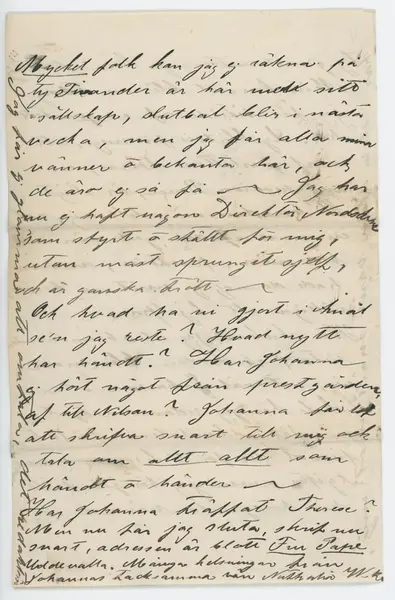 Mycket folk kan jag ej räkna på
ty Tivander är här med sitt
sällskap, slutbal blir i nästa
vecka, men jag får alla mina
vänner o bekanta här, och
de äro ej så få — Jag har
nu ej haft någon Direktör
som styrt o ställt för mig,
utan måst springet sjelf,
och är ganska trött —
Och hvad ha ni gjort i
se'n jag reste? Hvad nytt
har händt? Har Johanna
ej hört något från prestgården,
af till Nilsan? Johanna får
att skrifva snart till mig och
tala om allt allt som
händt o händer —
Har Johanna träffat Therese?
Men nu får jag sluta, skrif nu
snart, adressen är blott Fru Pape
Uddevalla. Många helsningar från
Johannas tacksamma vän Nathalia
Jag får ej glömma att omtala,